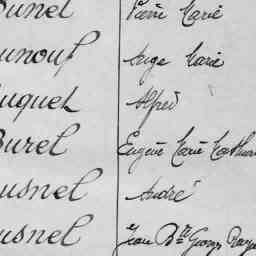 Pierre Marie
unouf Ange Marie
uquet Alfred
Burel Eugène Marie
usnel André
usnel Jean Bte Georges